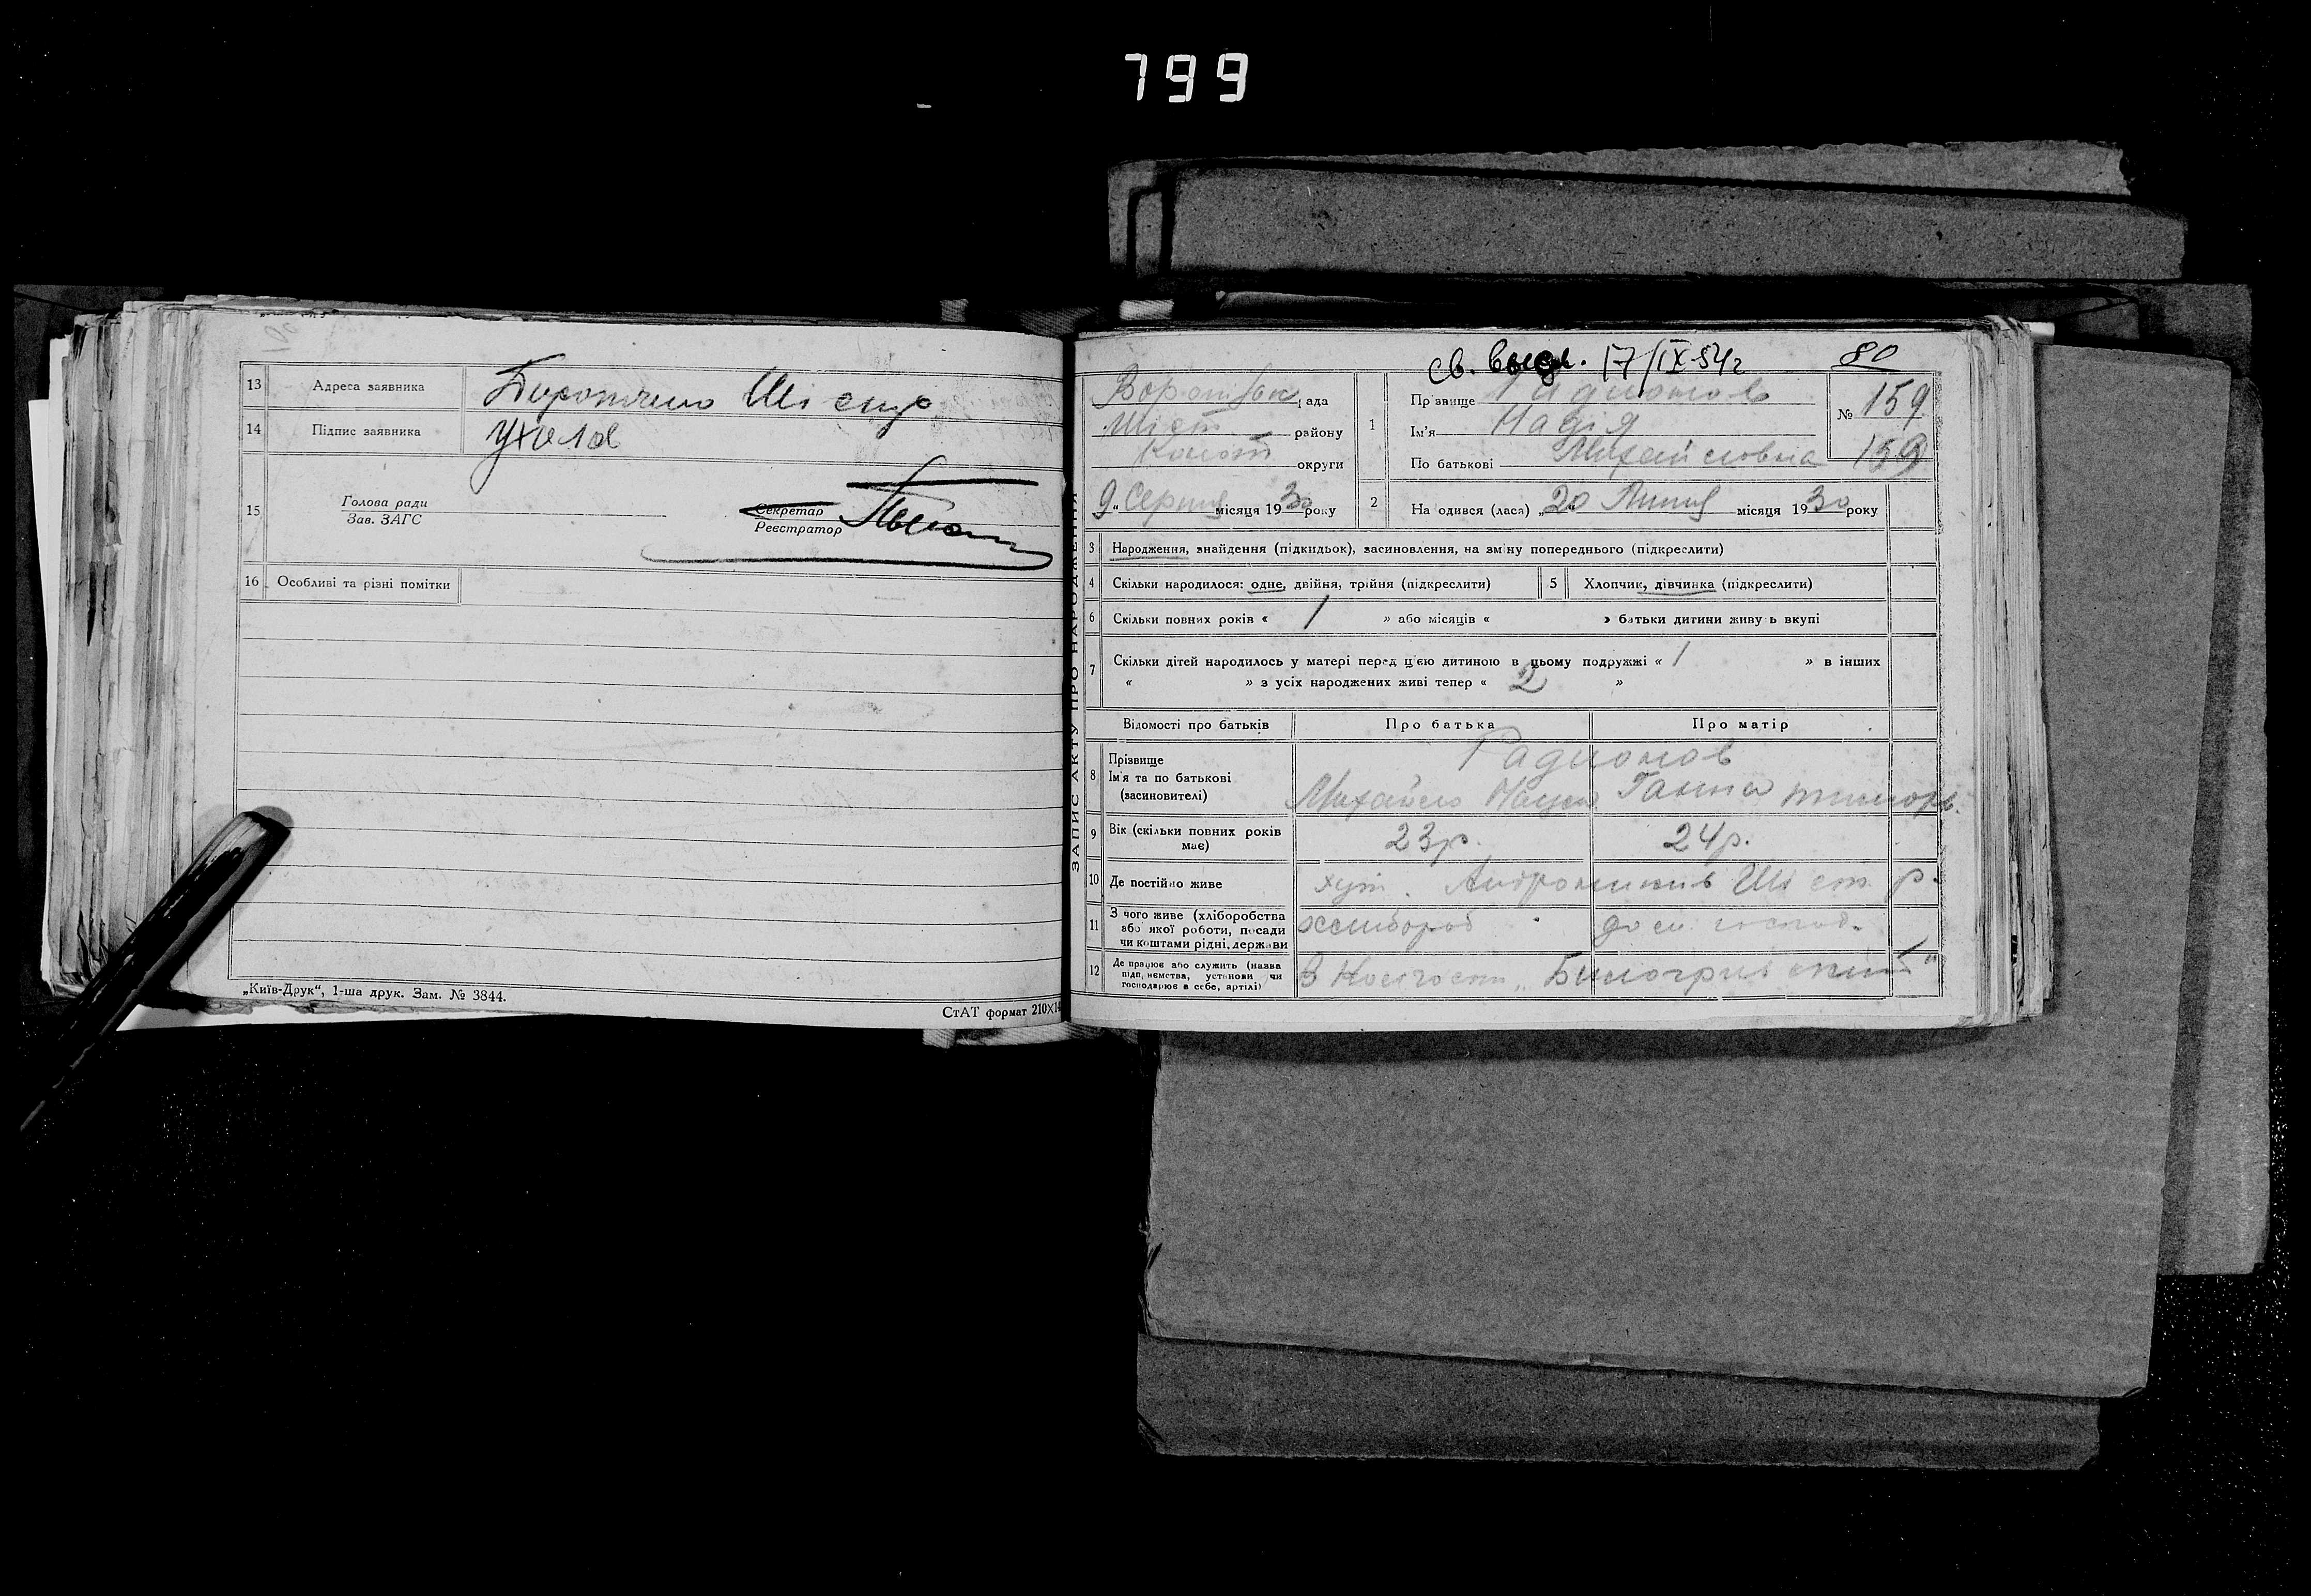 799
13 Адреса заявника
14 Підпис заявника Ухолов
15 Голова ради
Зав. ЗАГС
Секретар
Реєстратор
16 Особливі та різні помітки
„Київ-Друк“, 1-ша друк. Зам. № 3844.
СтАТ формат 210X14
ЗАПИС АКТУ ПРО НАРОДЖЕННЯ
св. выд. 17/IX-54г 80
рада
Міст району
Конот округи
„9„ Серпня місяця 1930 року
1 Прізвище Радионов
Ім'я Надія
По батькові Михайловна
№ 159
159
2 На одився (лася) „20 Липня місяця 1930 року
3 Народження, знайдення (підкидьок), засиновлення, на зміну попереднього (підкреслити)
4 Скільки народилося: одне, двійня, трійня (підкреслити) 5 Хлопчик, дівчинка (підкреслити)
6 Скільки повних років « 1 » або місяців « » батьки дитини живу ь вкупі
7 Скільки дітей народилось у матері перед цією дитиною в цьому подружжі « 1 » в інших
« » з усіх народжених живі тепер « 2 »
Відомості про батьків Про батька Про матір
8 Прізвище Радионов
Ім'я та по батькові
(засиновителі) Михайло Наум Ганна тимофв.
9 Вік (скільки повних років має) 23р. 24р.
10 Де постійно живе хут. Андроников Міст р.
11 З чого живе (хліборобства або якої роботи, посади чи коштами рідні, держави хлибороб дом. господ.
12 Де працює або служить (назва підприємства, установи чи господарює в себе, артілі) В